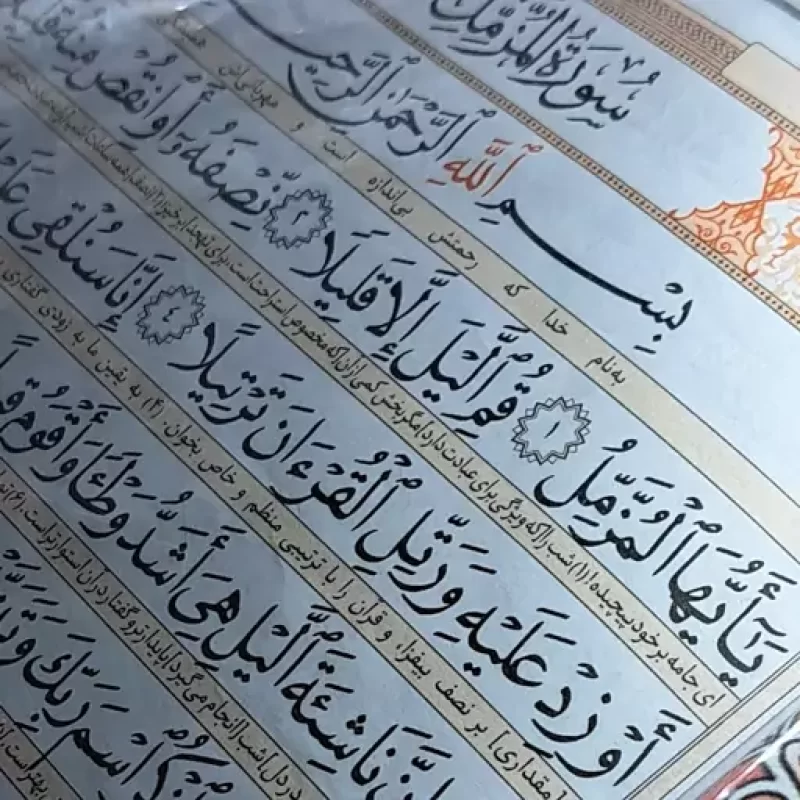 سُورَةُ الْمُزَّمِّل
بِسْمِ ٱللَّهِ ٱلرَّحْمَٰنِ ٱلرَّحِي
به‌نام خدا که رحمتش بی‌اندازه است و مهربانی‌اش
يَٰٓأَيُّهَا ٱلْمُزَّمِّلُ ١ قُمِ ٱلَّيْلَ إِلَّا قَلِيلًا ٢ نِّصْفَهُۥٓ أَوِ ٱنقُصْ مِنْهُ
ای جامه بر خود پیچیده! (۱) شب را [که ویژگی برای عبادت دارد] مگر بخش کمی از آن را که مخصوص استراحت است، برای تهجد برخیز؛ (۲)
أَوْ زِدْ عَلَيْهِ وَرَتِّلِ ٱلْقُرْءَانَ تَرْتِيلًا ٤ إِنَّا سَنُلْقِى عَلَيْ
[مقداری] بر نصف بیفزا، و قرآن را با ترتیبی منظم و خاص بخوان. (۴) به یقین ما به زودی گفتاری
نَّ نَاشِئَةَ ٱلَّيْلِ هِىَ أَشَدُّ وَطْـًٔا وَأَقْوَمُ
در دل شب [انجام می‌گیرد] پایدارتر و گفتار در آن استوارتر است. (۶)
ٱسْمَ رَبِّكَ وَتَ
بهتر است.